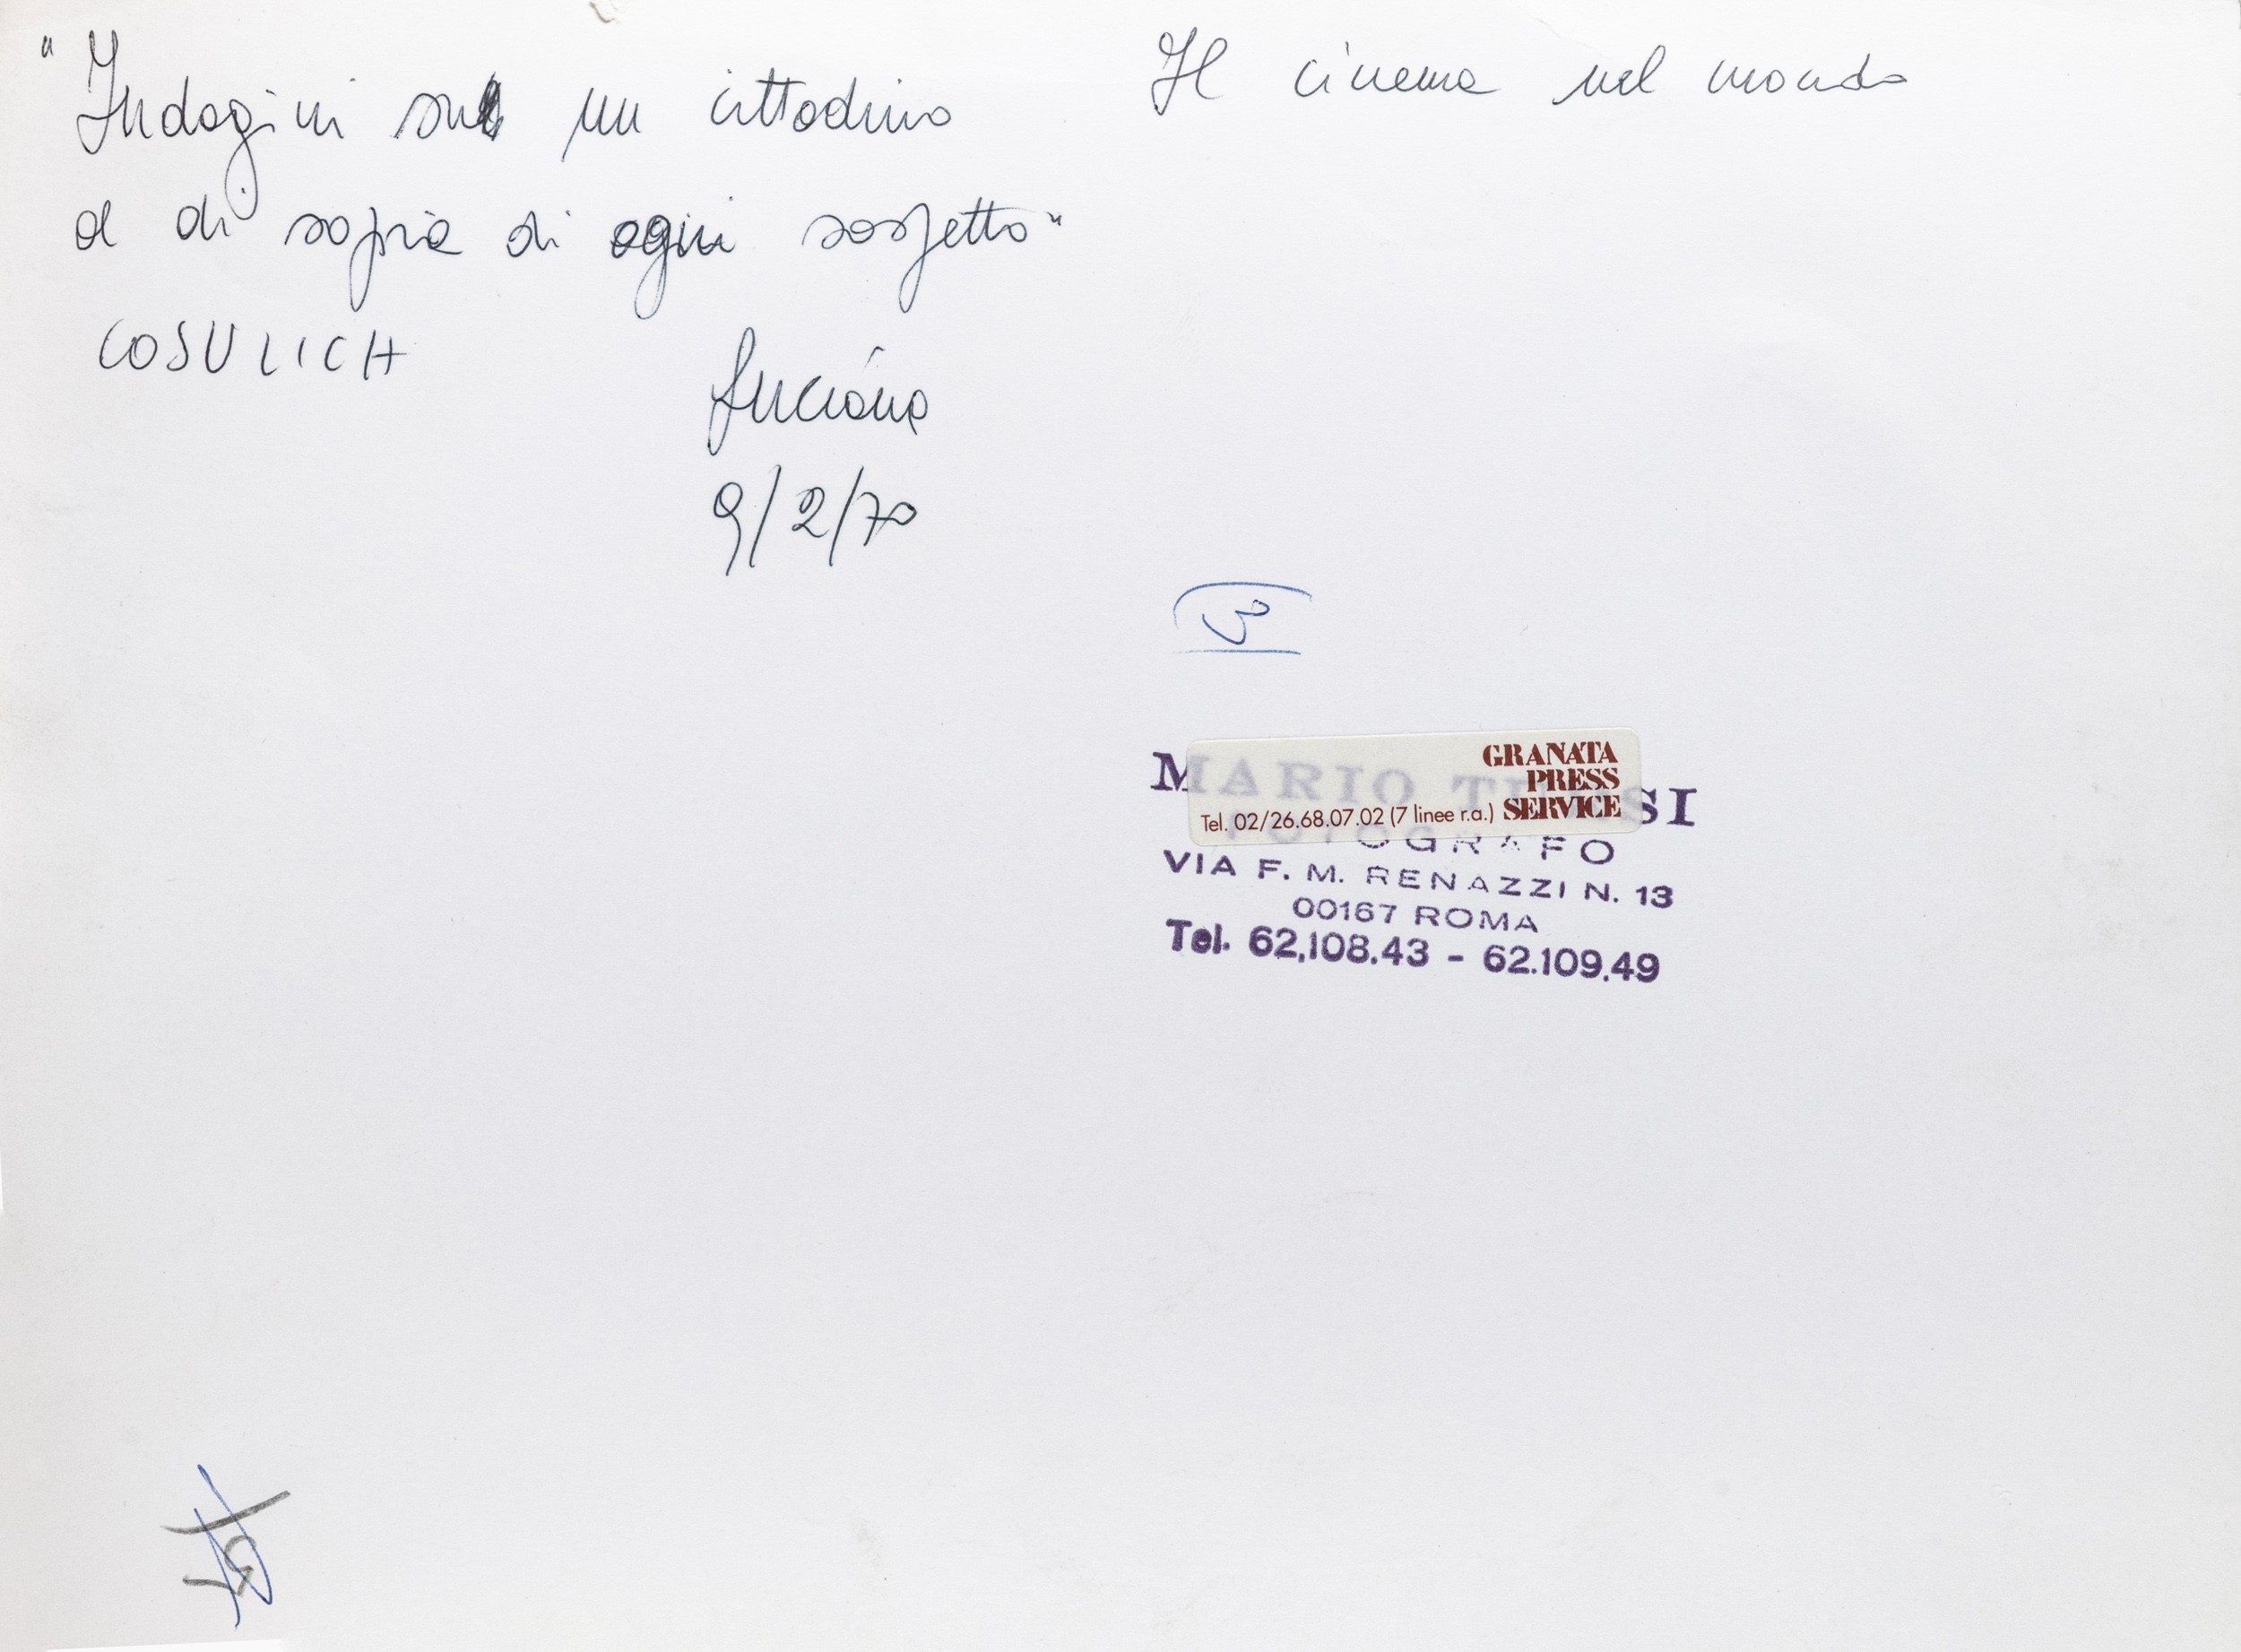 "Indagini su un cittadino
al di sopra di ogni sospetto"
COSULICH
Luciana
9/2/70
Il cinema nel mondo
3
GRANATA
PRESS
SERVICE
Tel. 02/26.68.07.02 (7 linee r.a.)
MARIO TURSI
FOTOGRAFO
VIA F. M. RENAZZI N. 13
00167 ROMA
Tel. 62.108.43 - 62.109.49